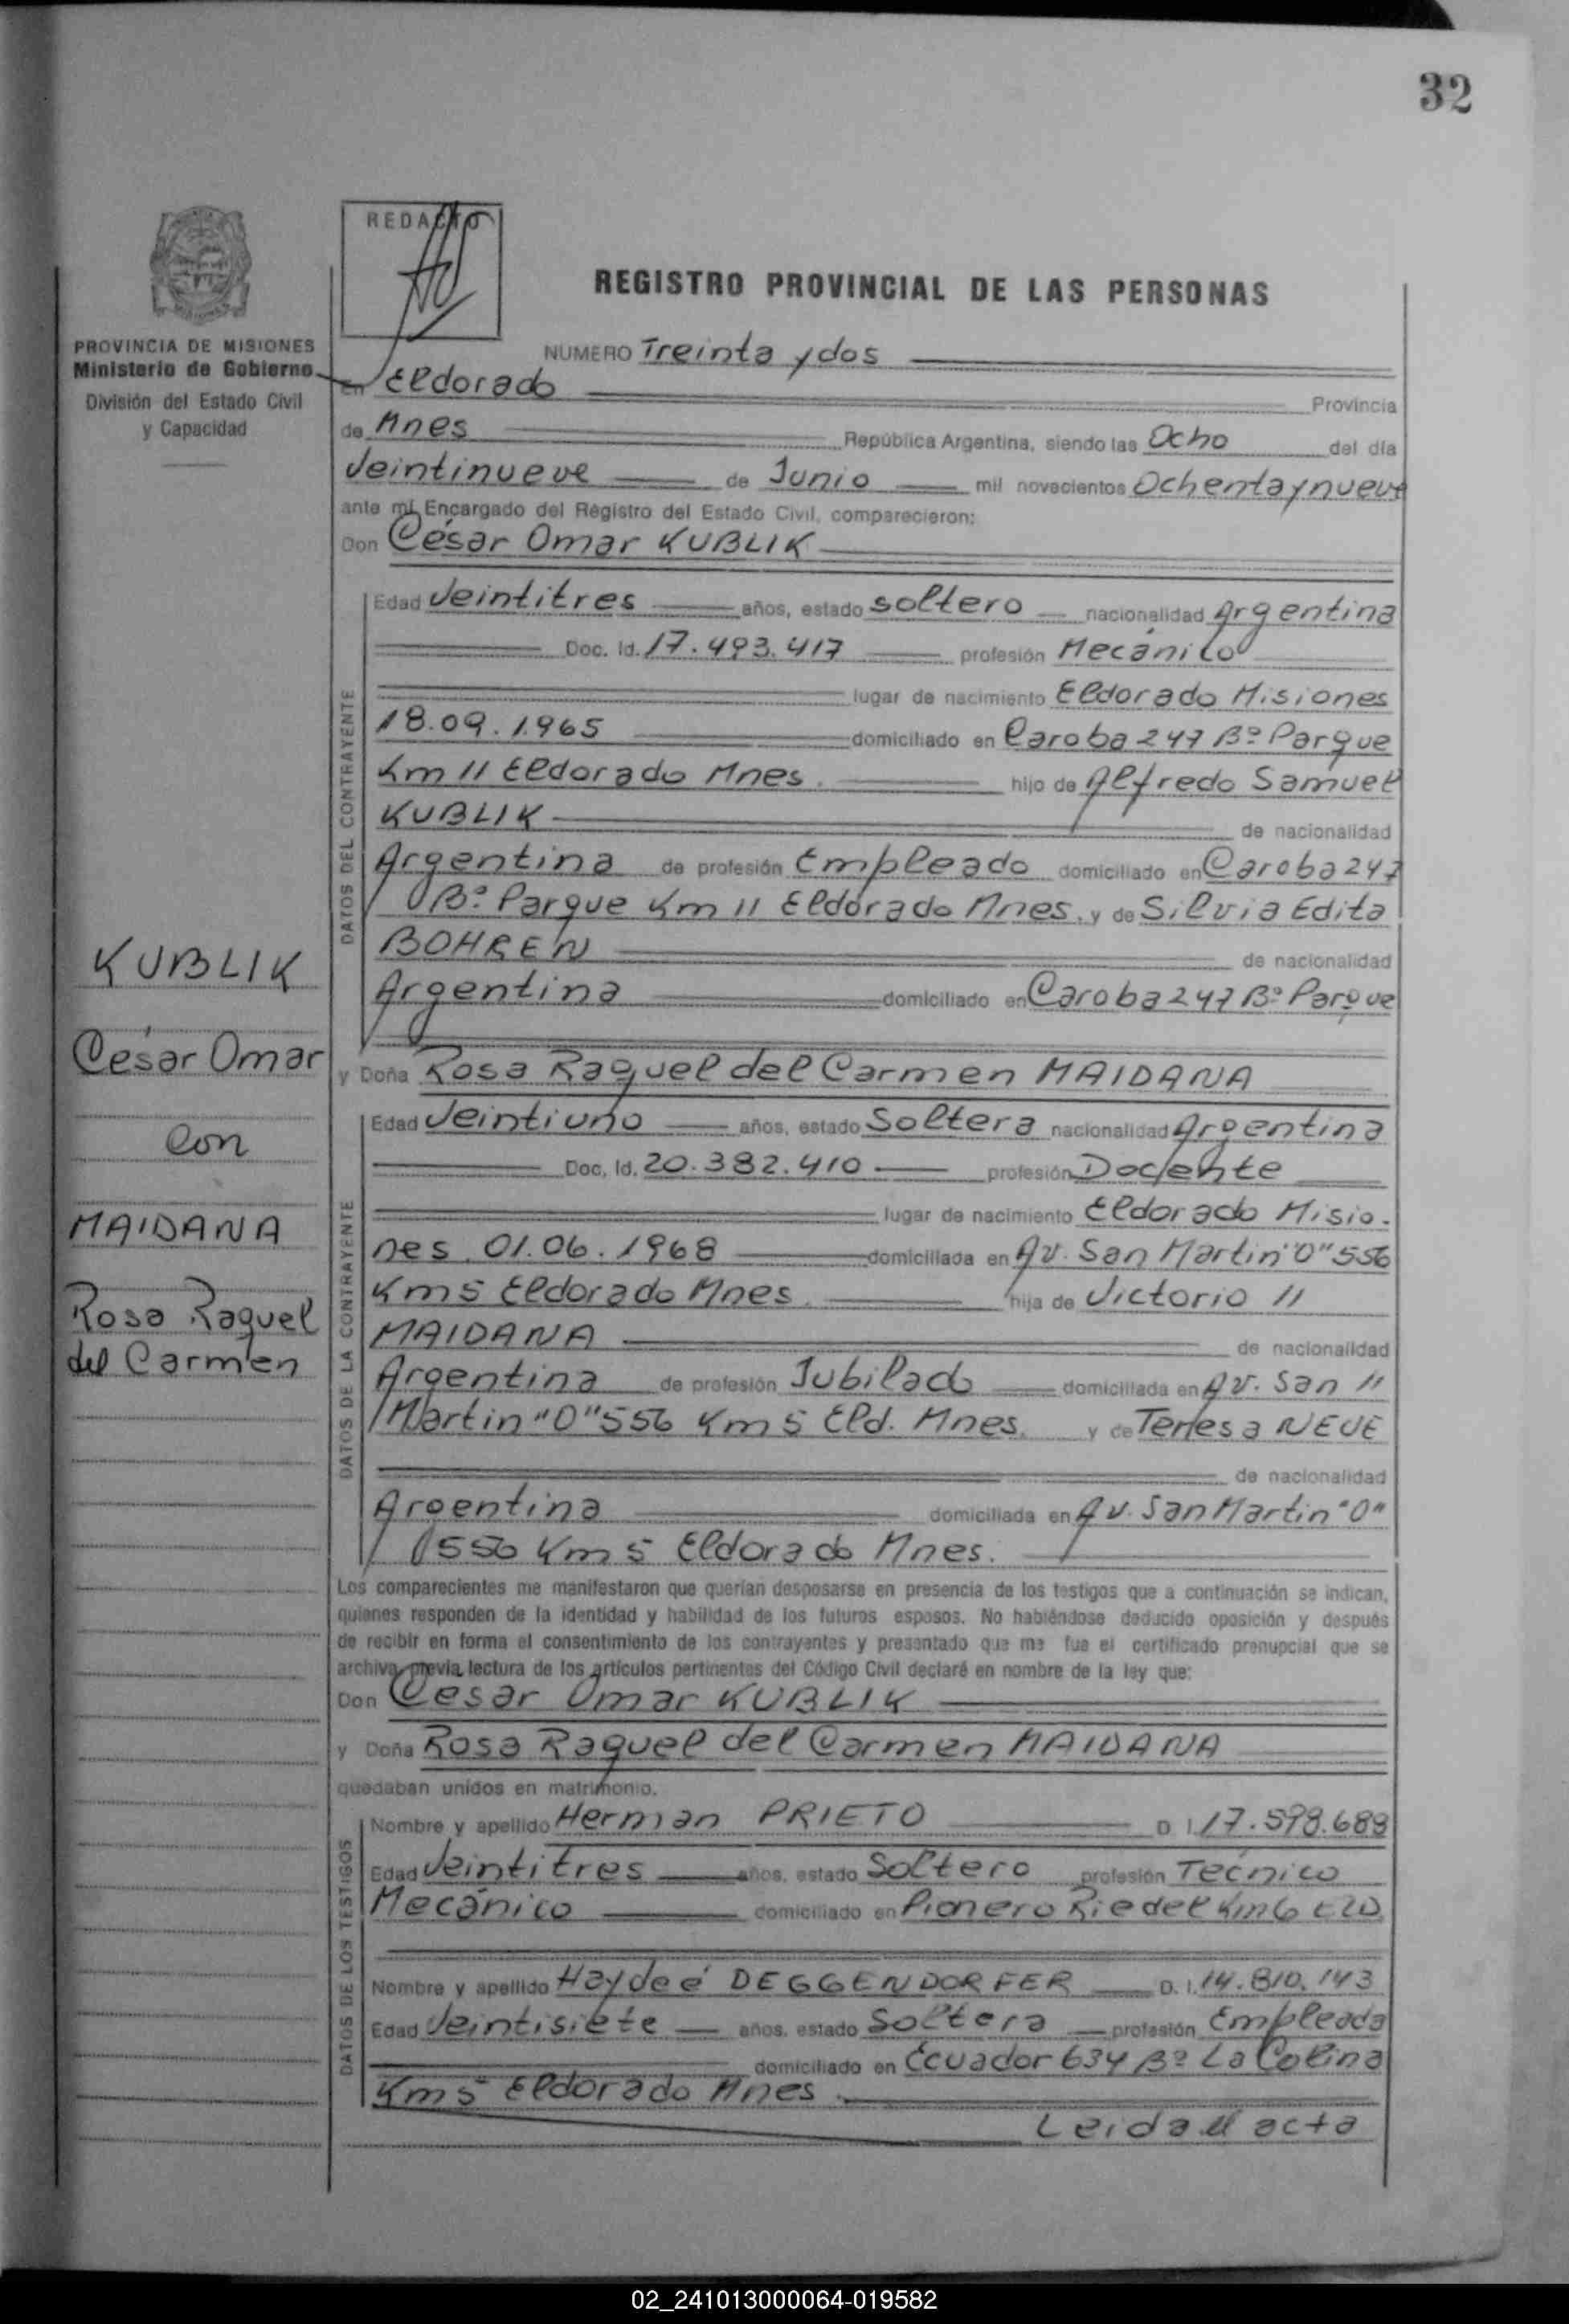 32
REDACTO
REGISTRO PROVINCIAL DE LAS PERSONAS
PROVINCIA DE MISIONES
Ministerio de Gobierno
División del Estado Civil
y Capacidad
NUMERO Treinta y dos
En Eldorado Provincia
de Mnes República Argentina, siendo las Ocho del día
Veintinueve de Junio mil novecientos Ochenta y nueve
ante mí Encargado del Registro del Estado Civil, comparecieron:
Don César Omar KUBLIK
DATOS DEL CONTRAYENTE
Edad Veintitres años, estado soltero nacionalidad Argentina
Doc. Id. 17.493.417 profesión Mecánico
lugar de nacimiento Eldorado Misiones
18.09.1965 domiciliado en Caroba 247 Bº Parque
Km 11 Eldorado Mnes. hijo de Alfredo Samuel
KUBLIK de nacionalidad
Argentina de profesión Empleado domiciliado en Caroba 247
Bº Parque Km 11 Eldorado Mnes. y de Silvia Edita
BOHREN de nacionalidad
Argentina domiciliado en Caroba 247 Bº Parque
KUBLIK
César Omar
con
MAIDANA
Rosa Raquel
del Carmen
y Doña Rosa Raquel del Carmen MAIDANA
DATOS DE LA CONTRAYENTE
Edad Veintiuno años, estado Soltera nacionalidad Argentina
Doc. Id. 20.382.410 profesión Docente
lugar de nacimiento Eldorado Misio-
nes 01.06.1968 domiciliada en Av. San Martin "O" 556
Km 5 Eldorado Mnes. hija de Victorio //
MAIDANA de nacionalidad
Argentina de profesión Jubilado domiciliada en Av. San //
Martin "O" 556 Km 5 Eld. Mnes. y de Teresa NEUE
de nacionalidad
Argentina domiciliada en Av. San Martin "O"
556 Km 5 Eldorado Mnes.
Los comparecientes me manifestaron que querían desposarse en presencia de los testigos que a continuación se indican,
quienes responden de la identidad y habilidad de los futuros esposos. No habiéndose deducido oposición y después
de recibir en forma el consentimiento de los contrayentes y presentado que me fue el certificado prenupcial que se
archiva, previa lectura de los artículos pertinentes del Código Civil declaré en nombre de la ley que:
Don Cesar Omar KUBLIK
y Doña Rosa Raquel del Carmen MAIDANA
quedaban unidos en matrimonio.
DATOS DE LOS TESTIGOS
Nombre y apellido Herman PRIETO D. I. 17.598.689
Edad Veintitres años, estado Soltero profesión Tecnico
Mecánico domiciliado en Pionero Riedel Km 6 ELD.
Nombre y apellido Haydeé DEGGENDORFER D. I. 14.810.143
Edad Veintisiete años, estado Soltera profesión Empleada
domiciliado en Ecuador 634 Bº La Colina
Km 5 Eldorado Mnes.
Leida el acta
02_241013000064-019582